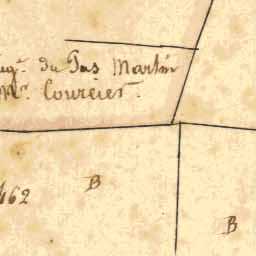 du Pas Martin
Mr. Courcier.
B
462
B